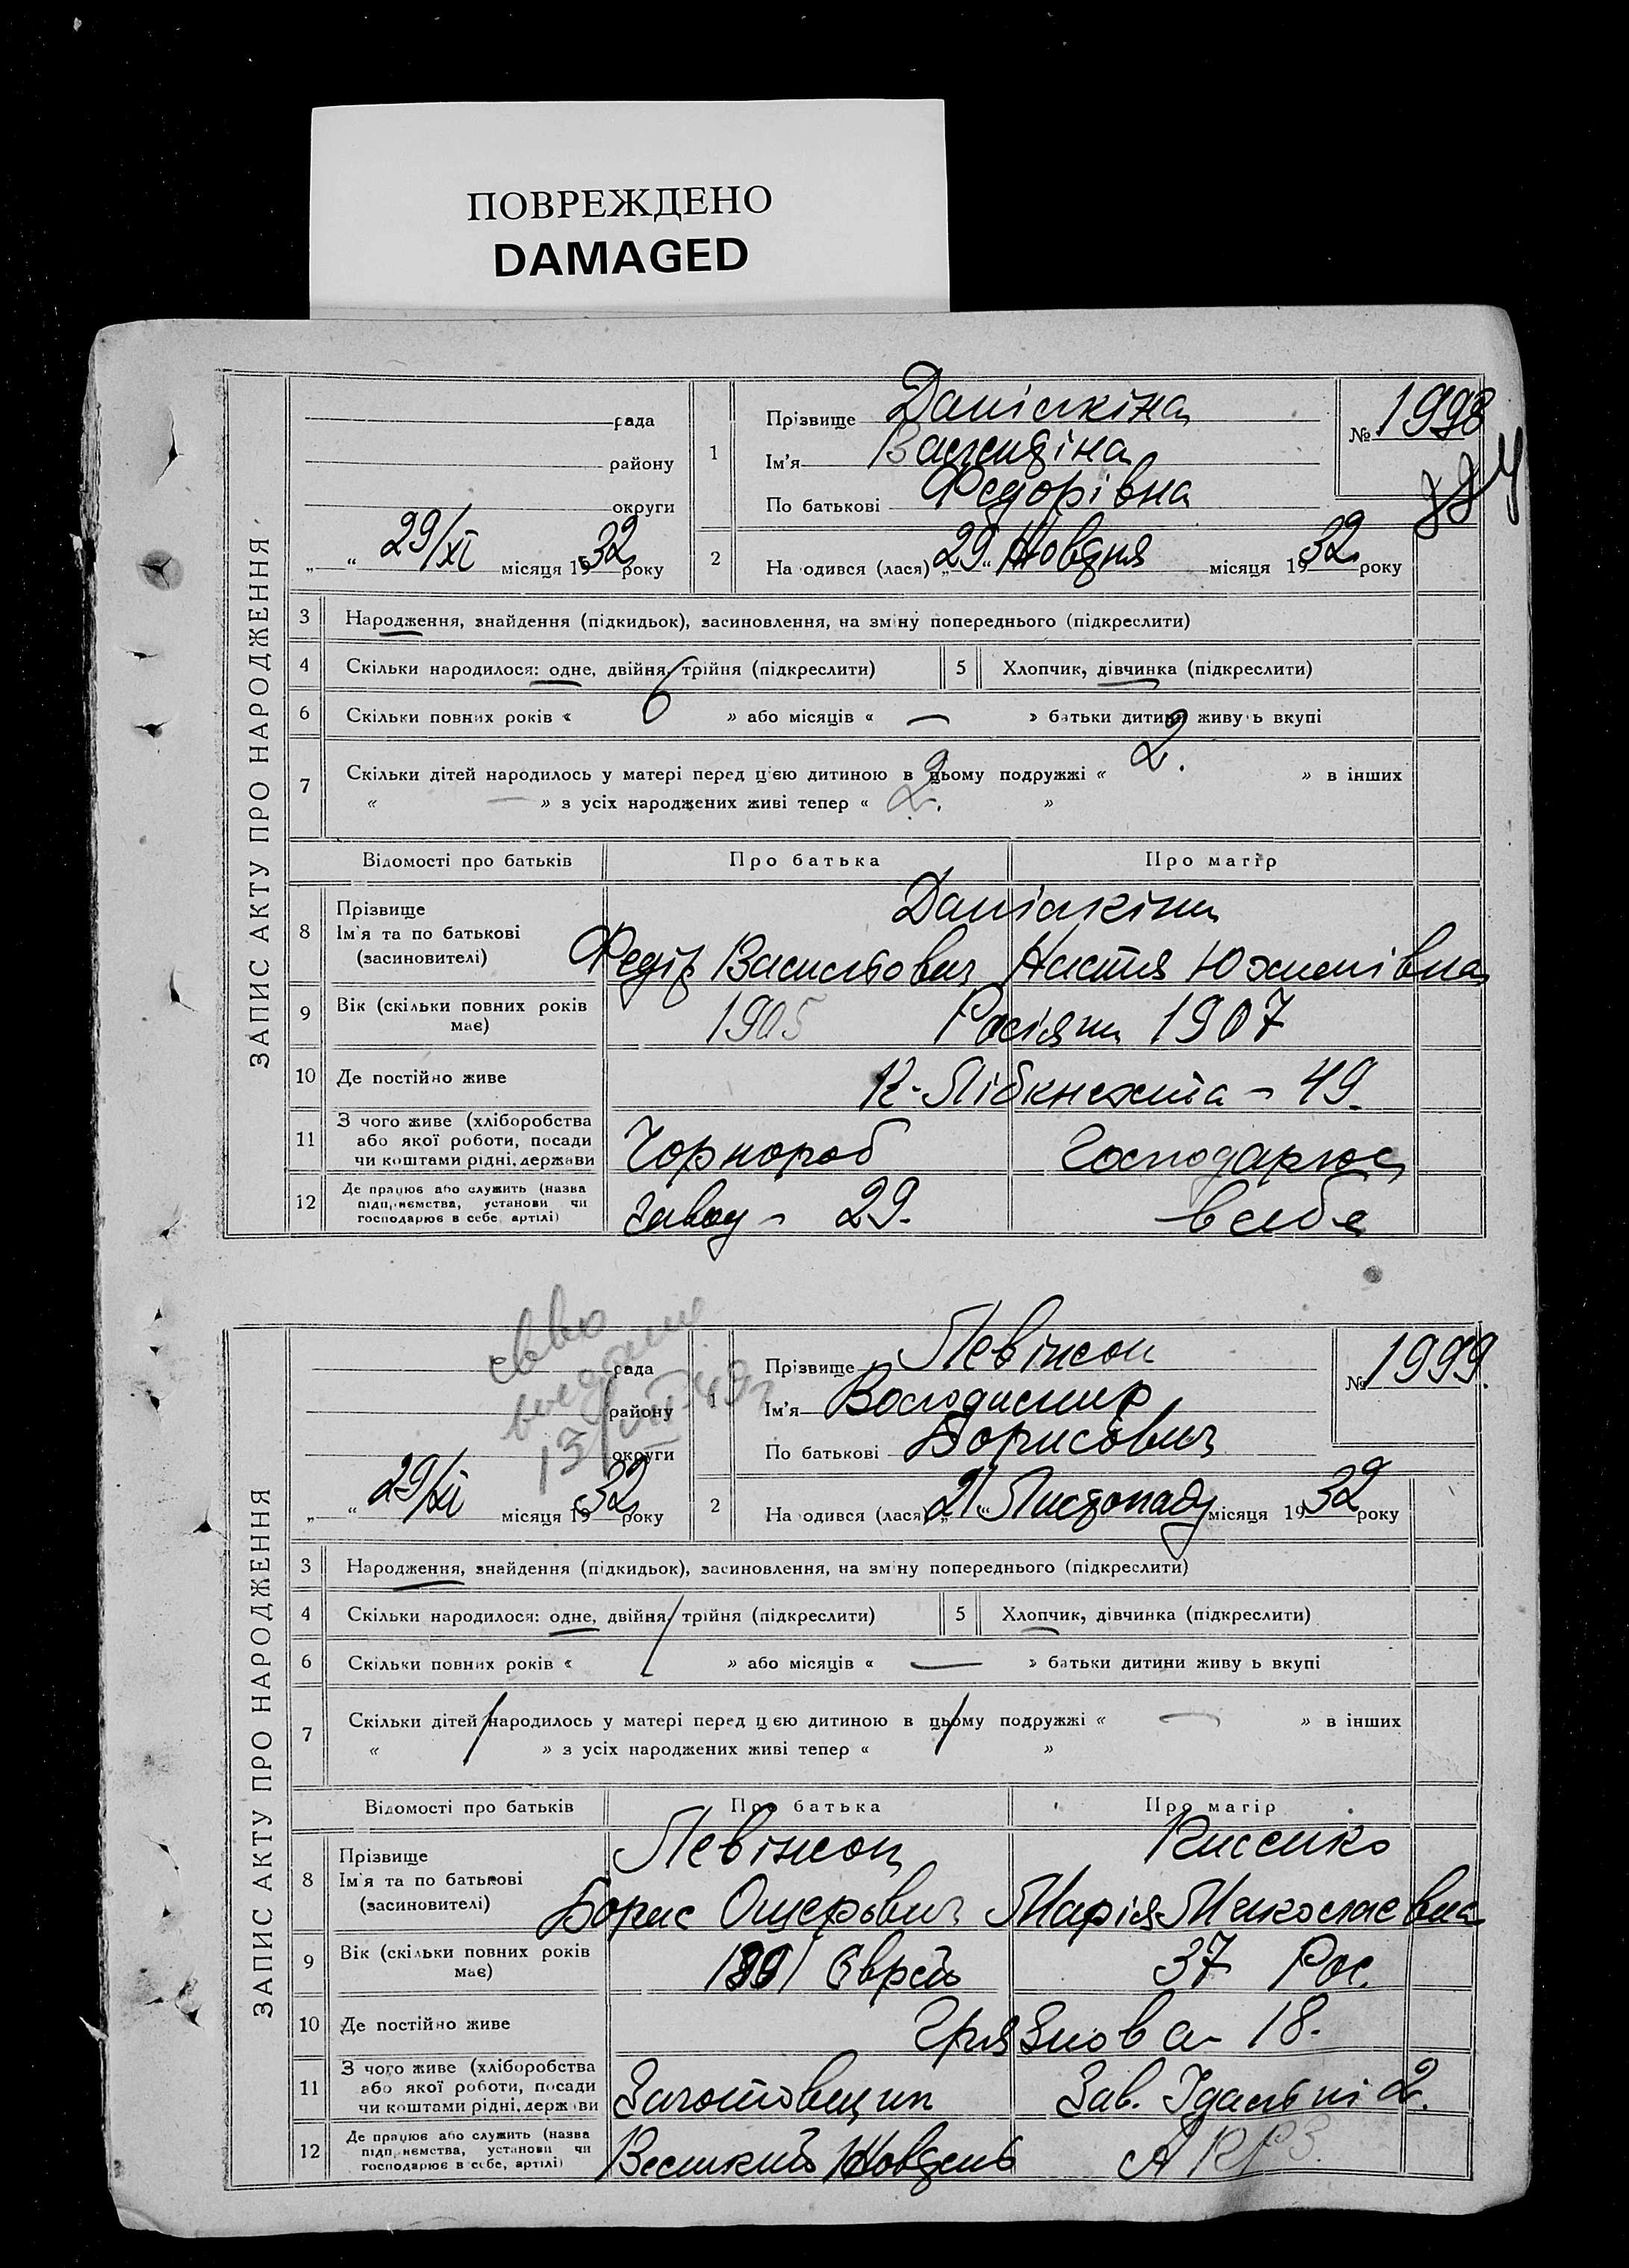 ПОВРЕЖДЕНО
DAMAGED
ЗАПИС АКТУ ПРО НАРОДЖЕННЯ
рада
району
округи
„ “ 29/XI місяця 1932 року
1
Прізвище Данілкіна
Ім'я Валентіна
По батькові Федорівна
№ 1998
2
На одився (лася) „29“ Жовтня місяця 1932 року
3 Народження, знайдення (підкидьок), засиновлення, на зміну попереднього (підкреслити)
4 Скільки народилося: одне, двійня, трійня (підкреслити) 5 Хлопчик, дівчинка (підкреслити)
6 Скільки повних років « 6 » або місяців « — » батьки дитини живу ь вкупі
7 Скільки дітей народилось у матері перед цією дитиною в цьому подружжі « 2. » в інших
« — » з усіх народжених живі тепер « 2. »
Відомості про батьків Про батька Про матір
8 Прізвище
Ім'я та по батькові
(засиновителі)
Данілкіни
Федір Василович Настя Южимівна
9 Вік (скільки повних років має) 1905 Росіяни 1907
10 Де постійно живе К. Лібкнехта - 49.
11 З чого живе (хліборобства
або якої роботи, посади
чи коштами рідні, держави
Чорнороб Господарює
12 Де працює або служить (назва
підприємства, установи чи
господарює в себе, артілі)
завод - 29. в себе
ЗАПИС АКТУ ПРО НАРОДЖЕННЯ
13/VII 49г
рада
району
округи
„ “ 29/XI місяця 1932 року
1
Прізвище Левінсон
Ім'я Володимир
По батькові Борисович
№ 1999.
2
На одився (лася) „21“ Листопаду місяця 1932 року
3 Народження, знайдення (підкидьок), засиновлення, на зміну попереднього (підкреслити)
4 Скільки народилося: одне, двійня, трійня (підкреслити) 5 Хлопчик, дівчинка (підкреслити)
6 Скільки повних років « 1 » або місяців « — » батьки дитини живу ь вкупі
7 Скільки дітей народилось у матері перед цією дитиною в цьому подружжі « — » в інших
« » з усіх народжених живі тепер « »
Відомості про батьків Про батька Про матір
8 Прізвище
Ім'я та по батькові
(засиновителі)
Левінсон Кисенко
Борис Ошерович Марія Миколаєвна
9 Вік (скільки повних років має) 1891 Єврей 37 Рос.
10 Де постійно живе Грязнова - 18.
11 З чого живе (хліборобства
або якої роботи, посади
чи коштами рідні, держави
Заготовщик Зав. Їдальні 2.
12 Де працює або служить (назва
підприємства, установи чи
господарює в себе, артілі)
Великий Жовтень